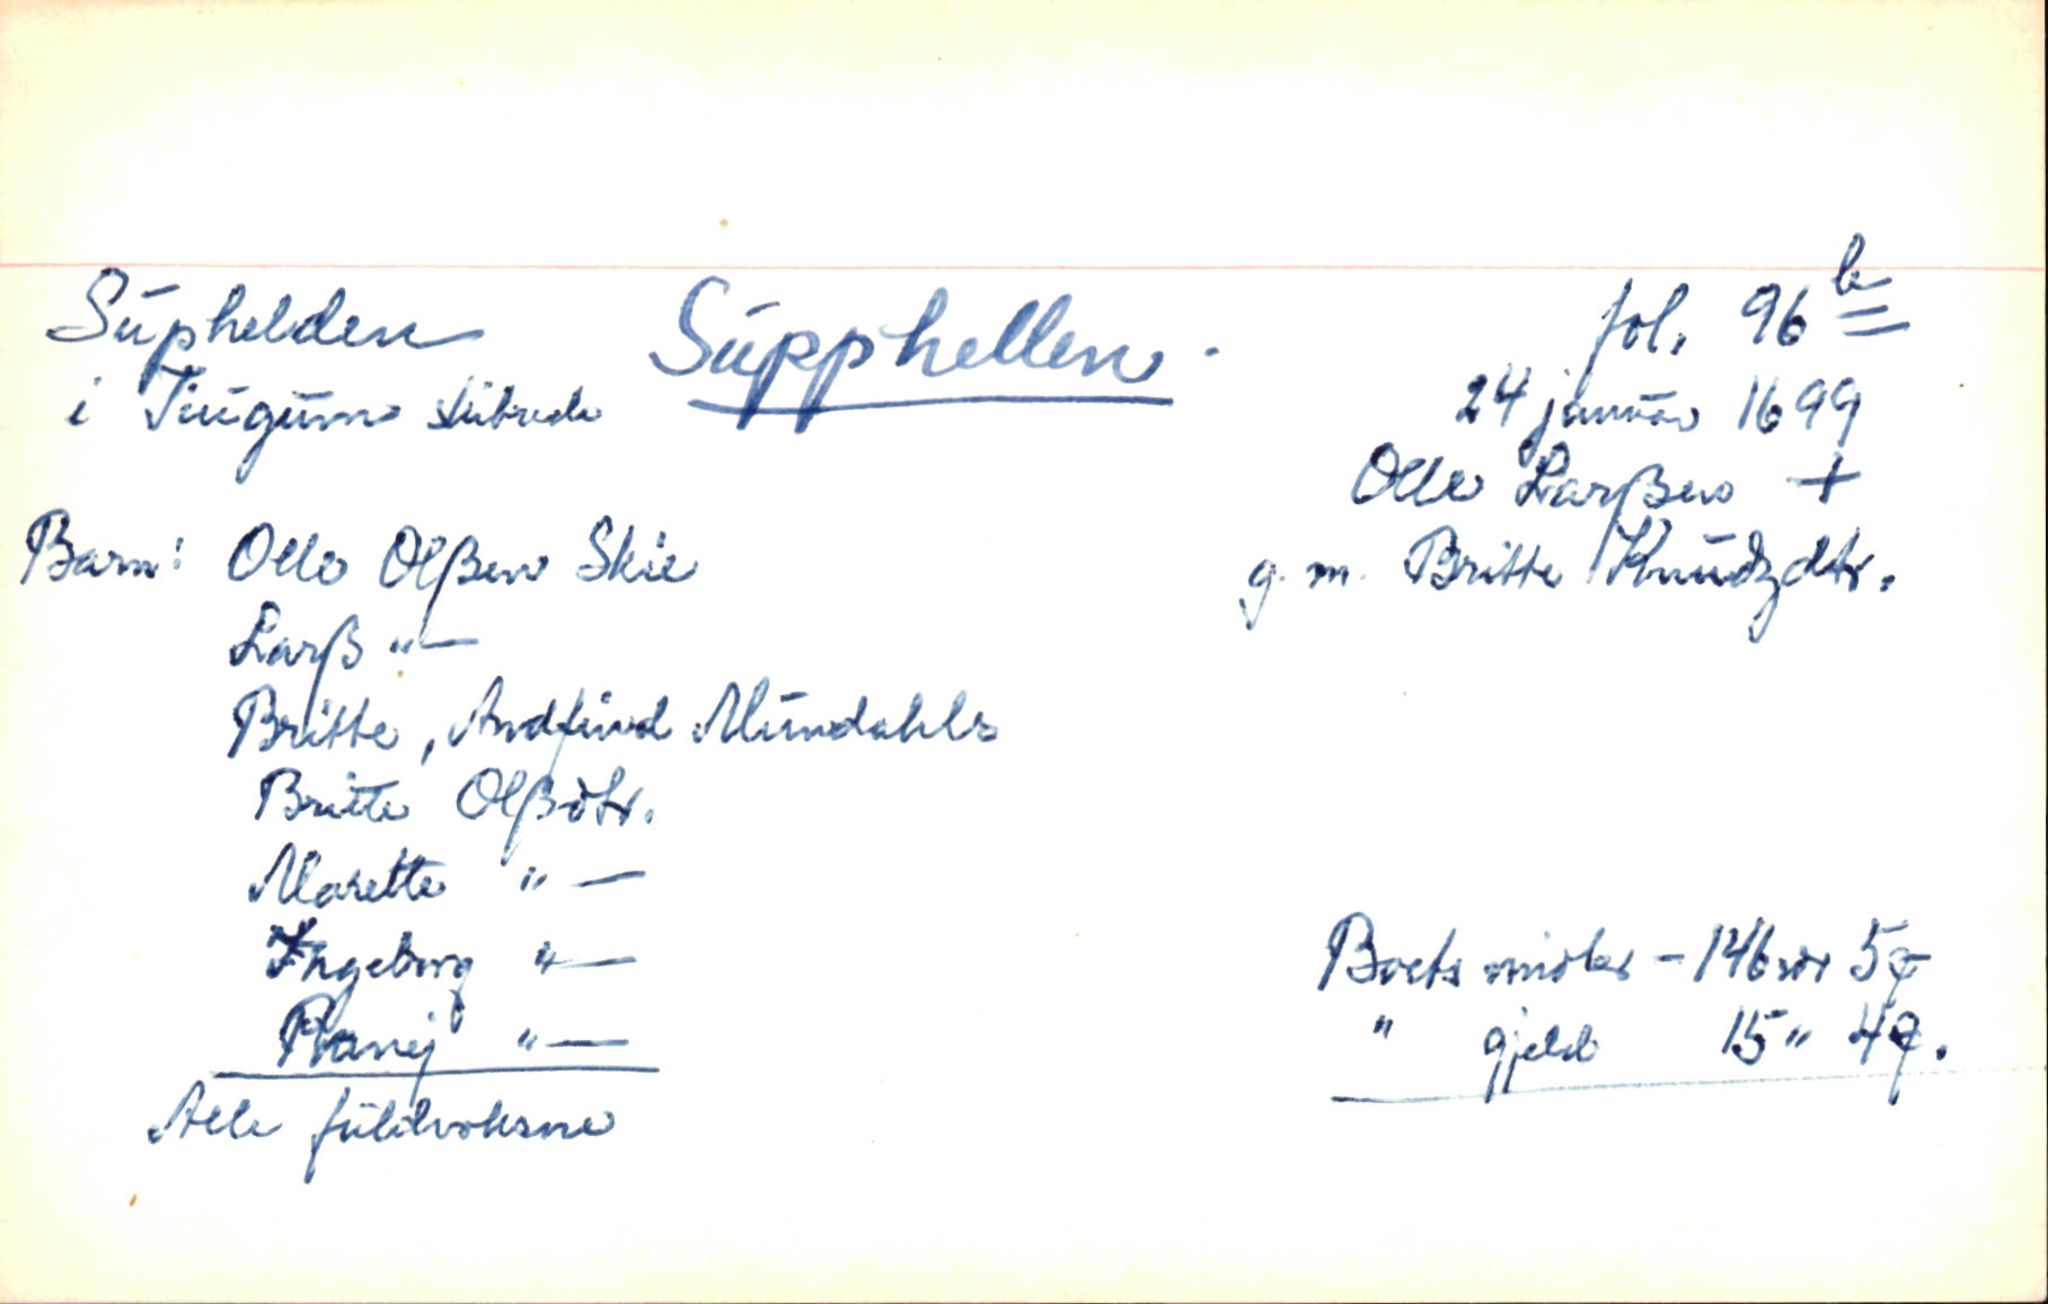 Suphelden
i Tiugum skibrede
Supphellen.
fol. 96 b
24 januar 1699
Olle Larßen +
g. m. Britte Knudzdtr.
Barn: Olle Olßen Skie
Larß "—
Britte, Andfind Mundahls
Britte Olßdtr.
Marette "—
Ingeborg "—
Ranej "—
Alle fuldvoksne
Boets midler - 146 rdr 5
" gjeld 15 " 4